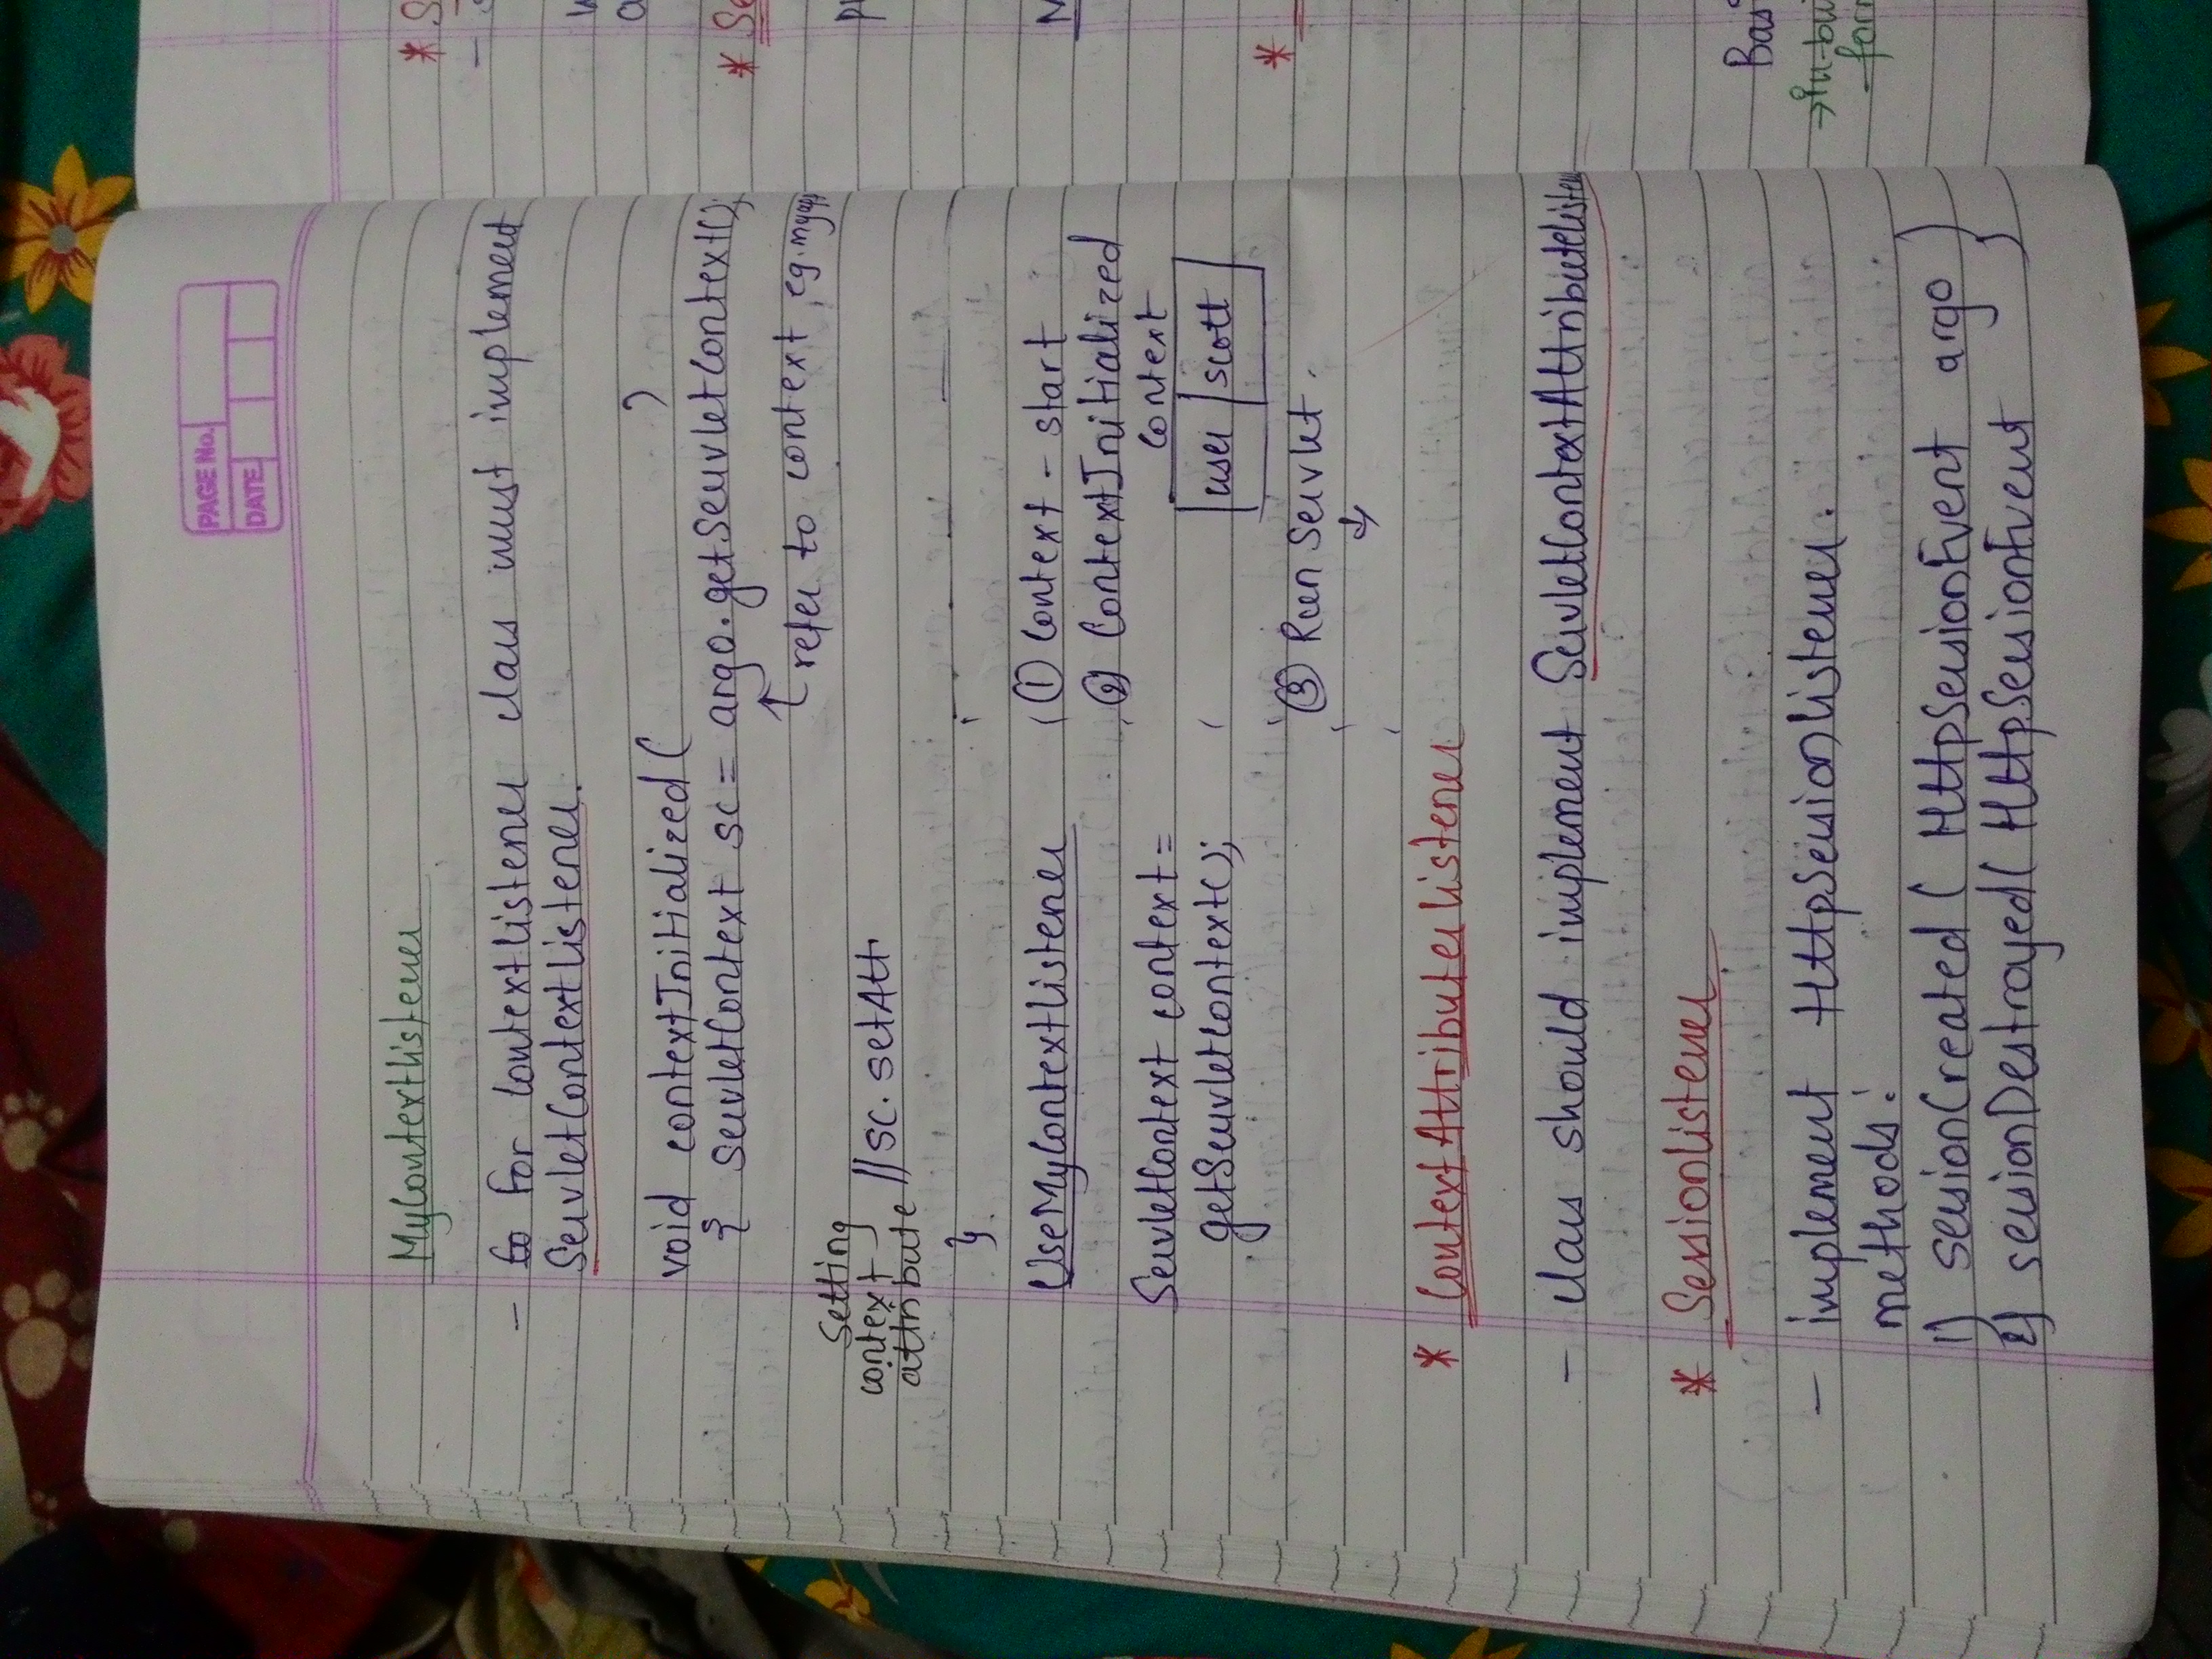 PAGE No.
DATE
MyContextListener
- for ContextListener class must implement
ServletContextListener.
void contextInitialized( )
{ ServletContext sc = arg0.getServletContext();
refer to context, eg. myapp
Setting
context
attribute //sc.setAtt
}.
UseMyContextListener
ServletContext context =
getServletContext();
① Context - start
② ContextInitialized
Context
user scott
③ Run Servlet.
* ContextAttributerListener
- class should implement ServletContextAttributeListen
* SessionListener
- implement HttpSessionListener.
methods:
1) sessionCreated ( HttpSessionEvent arg0 )
2) sessionDestroyed( HttpSessionEvent )
* S
* Se
*
Bas
→in-bu
for